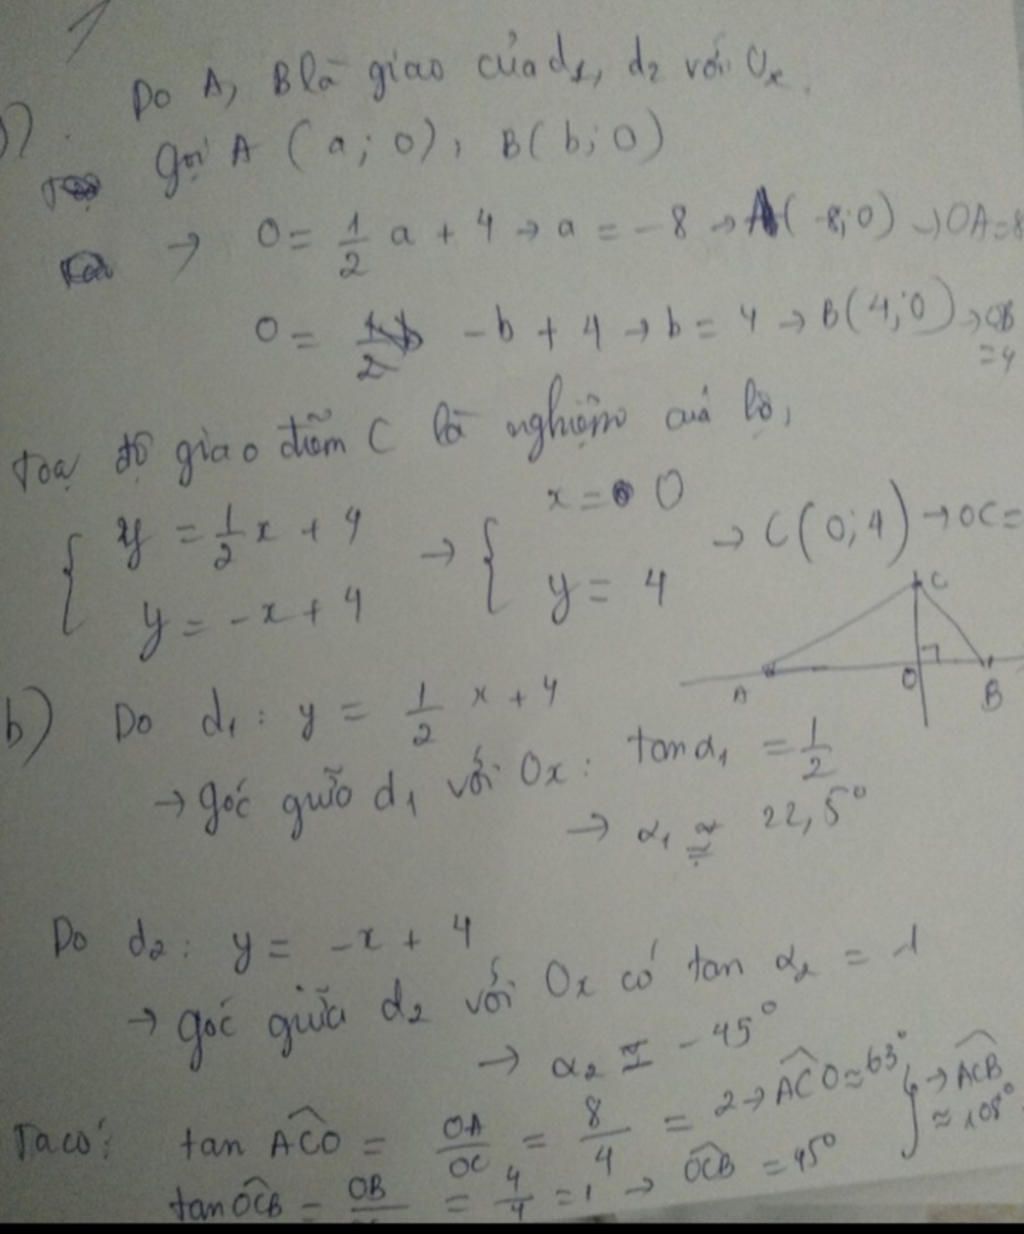 Do A, B là giao của d₁, d₂ với Ox.
gọi A (a; 0), B(b; 0)
→ 0 = 1/2 a + 4 → a = -8 → A(-8; 0) → OA = 8
0 = -b + 4 → b = 4 → B(4; 0) → OB = 4
Toạ độ giao điểm C là nghiệm của
{ y = 1/2 x + 4
y = -x + 4 → { x = 0
y = 4 → C(0; 4) → OC =
C
A O B
b) Do d₁: y = 1/2 x + 4
→ góc giữa d₁ với Ox: tan α₁ = 1/2
→ α₁ ≈ 22,5°
Do d₂: y = -x + 4
→ góc giữa d₂ với Ox có tan α₂ = -1
→ α₂ = -45°
Ta có: tan ACO = OA/OC = 8/4 = 2 → ACO ≈ 63° } → ACB ≈ 108°
tan OCB = OB = 4/4 = 1 → OCB = 45°